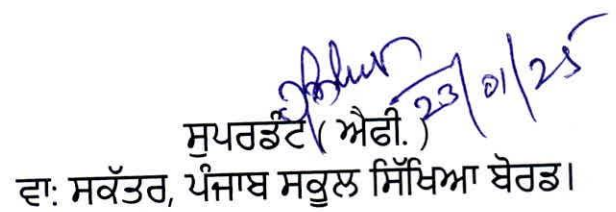 23/01/25
ਸੁਪਰਡੰਟ ( ਐਫੀ. )
ਵਾ: ਸਕੱਤਰ, ਪੰਜਾਬ ਸਕੂਲ ਸਿੱਖਿਆ ਬੋਰਡ।